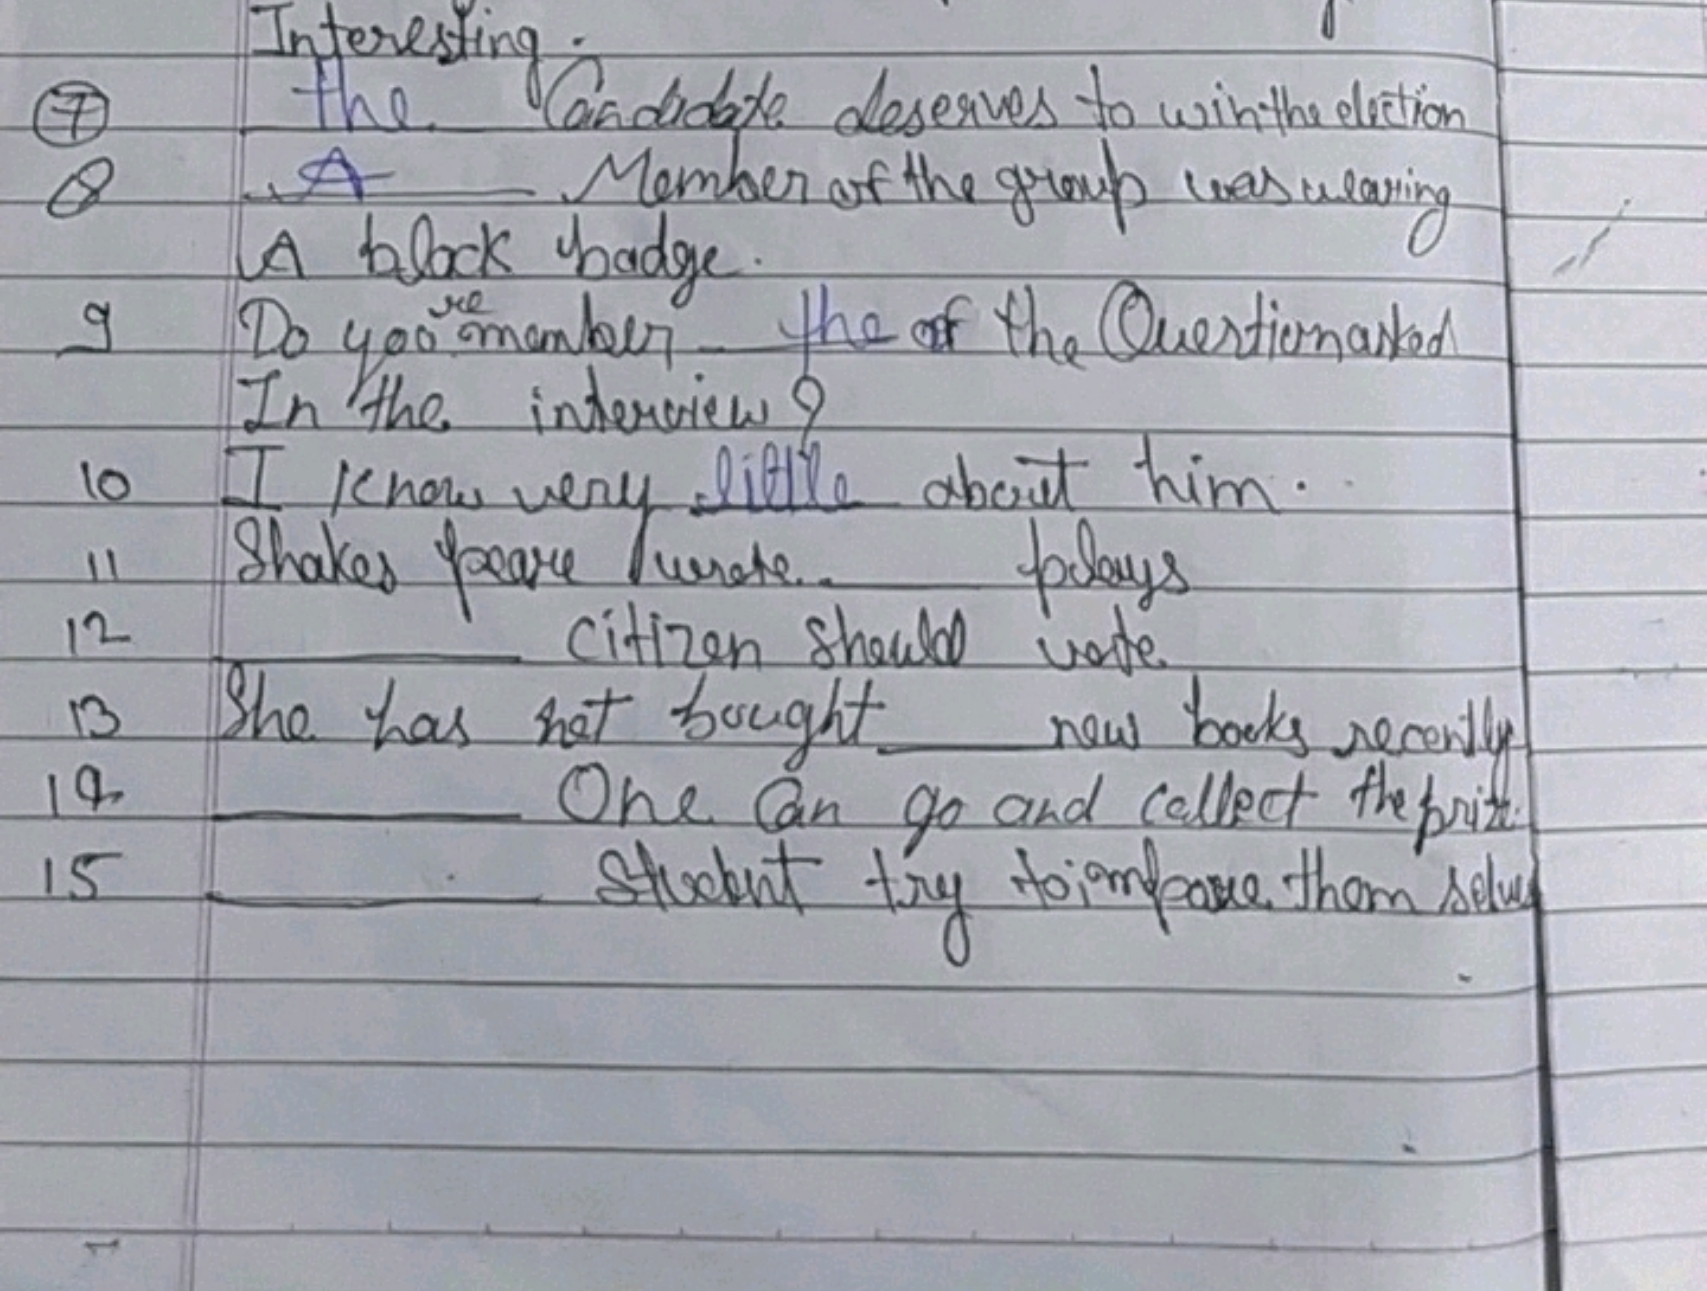 Interesting.
7 the Candidate deserves to win the election
8 A Member of the group was wearing
A black badge.
9 Do you remember the of the Question asked
In the interview?
10 I know very little about him.
11 Shakes peare wrote plays
12 citizen should vote
13 She has not bought new books recently
14 One Can go and collect the
15 Student try to improve them selves